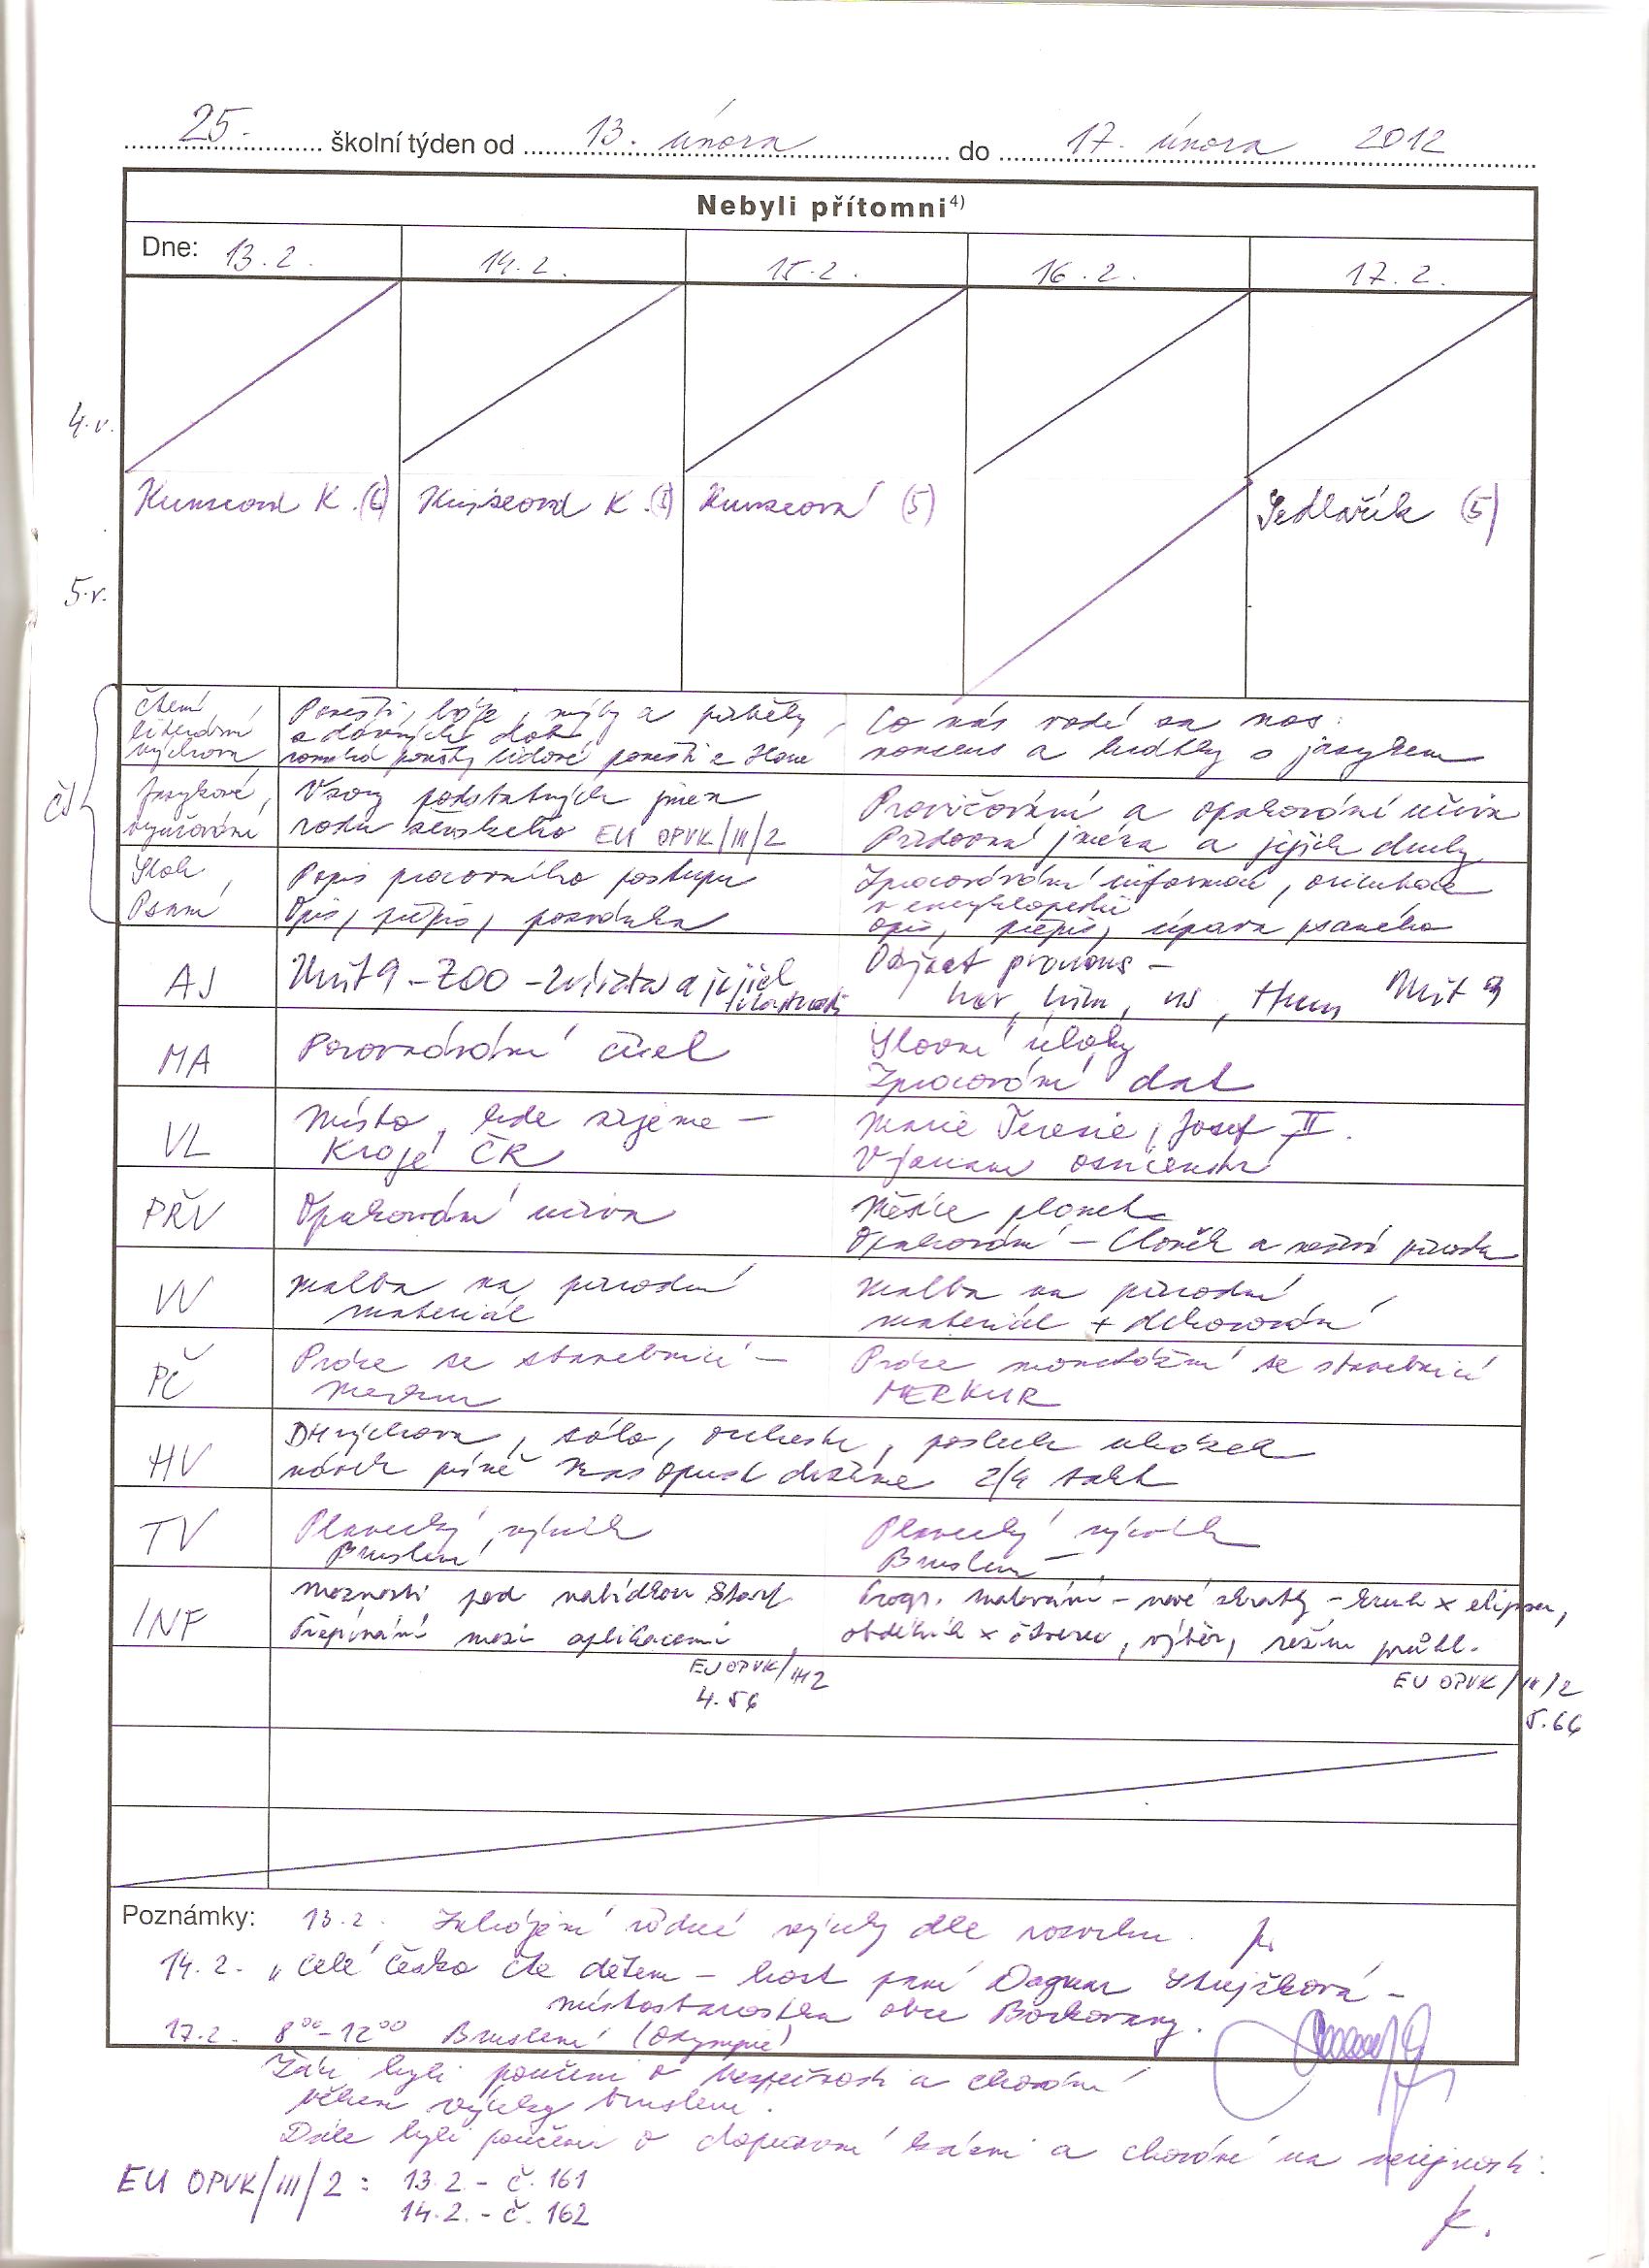 25. školní týden od 13. února do 17. února 2012
Nebyli přítomni⁴⁾
Dne: 13.2. 14.2. 15.2. 16.2. 17.2.
4.r.
K. (5) Sedlařík (5)
5.r.
ČJ
Čtení, literární výchova
Pověsti, báje, mýty a příběhy
z dávných dob
lidové pověsti
Co nás vodí za nos:
nonsens a hrátky s jazykem
Jazykové vyučování
Vzory podstatných jmen
rodu ženského EU OPVK/III/2
Procvičování a opakování učiva
Přídavná jména a jejich druhy
Sloh, Psaní
Popis pracovního postupu
Opis, přepis, pozvánka
Zpracovávání informací, orientace
v encyklopedii
opis, přepis, úprava psaného
AJ
Unit 9 - ZOO - zvířata a jejich
vlastnosti
Object pronouns -
her, him, us, them Unit 9
MA
Porovnávání čísel
Slovní úlohy
Zpracování dat
VL
Místo, kde žijeme -
Kraje ČR
Marie Terezie, Josef II.
Význam osvícenství
PŘV
Opakování učiva
Měsíce planet
Opakování - Člověk a neživá příroda
VV
Malba na přírodní
materiál
Malba na přírodní
materiál + dekorování
PČ
Práce se stavebnicí -
Merkur
Práce montážní se stavebnicí
MERKUR
HV
DH výchova, sólo, orchestr, poslech ukázek
nácvik písně Masopust držíme 2/4 takt
TV
Plavecký výcvik
Bruslení
Plavecký výcvik
Bruslení
INF
Možnosti pod nabídkou Start
Přepínání mezi aplikacemi
Progr. malování - nové zkratky - kruh x elipsa,
obdélník x čtverec, výběr, režim průhl.
EU OPVK/III2
4.56
EU OPVK/III/2
5.66
Poznámky: 13.2. Zahájení řádné výuky dle rozvrhu.
14.2. „Celé Česko čte dětem - host paní Dagmar -
místostarostka obce Borkovany.
17.2. 8⁰⁰-12⁰⁰ Bruslení (Olympie)
Žáci byli poučeni o bezpečnosti a chování
během výuky bruslení.
Dále byli poučeni o dopravní kázni a chování na veřejnosti.
EU OPVK/III/2: 13.2. - č. 161
14.2. - č. 162